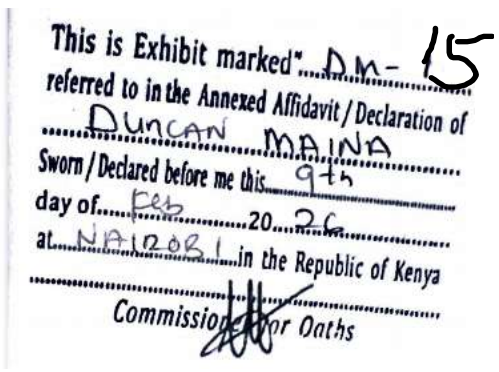 This is Exhibit marked" DM-15
referred to in the Annexed Affidavit/Declaration of
DUNCAN MAINA
Sworn/Declared before me this 9th
day of Feb 2026
at NAIROBI in the Republic of Kenya
Commissioner for Oaths